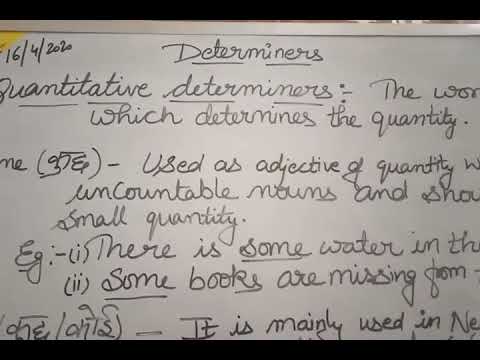 16/4/2020
Determiners
Quantitative determiners:- The wor
which determines the quantity.
me (कुछ) - Used as adjective of quantity w
uncountable nouns and sho
small quantity.
Eg:-(i) There is some water in th
(ii) Some books are missing from
(कुछ/कोई) - It is mainly used in Ne